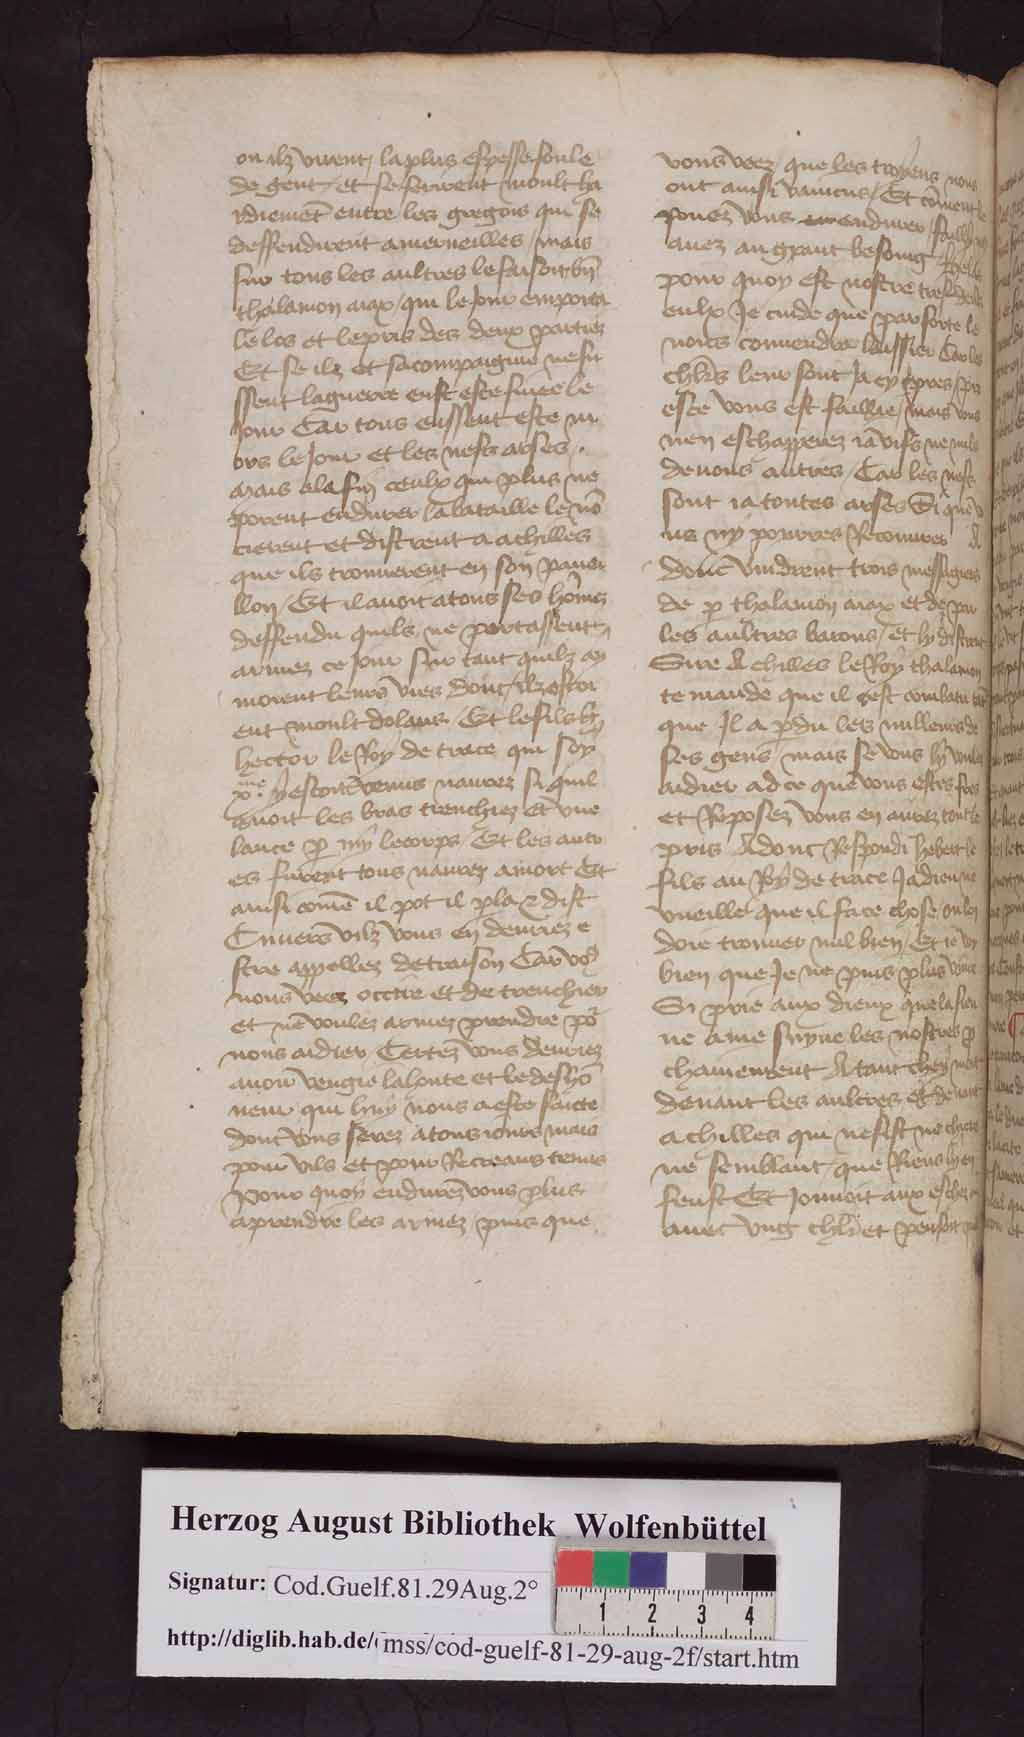 ou ilz virent la plus espesse foule
de gent et se ferirent moult ha
rdiement entre les gregois qui se
deffendirent a merueilles / mais
sur tous les aultres le faisoit bn̄
thalamon aiax / qui le jour emporta
le los et le pris des deux parties
Et se ilz et sa compaignie ne fu
ssent la guerre eust este finee le
jour Car tous eussent este m
ors le jour et les nefz arses /.
mais a la fin ceulx qui plus ne
porent endurer la bataille le nō
cierent et distrent a achilles
que ils trouuerent en son pauei
llon / Et il auoit a tous ses hōmes
deffendu quils ne portassent
armes ce jour sur tant quilz ay
moient leurs vies dont ilz estoi
ent moult dolans / Et le filz
hector le Roy de trace qui soy
xme y estoit venus naurez si quil
auoit les bras trenchiez et vne
lance p my le corps / Et les autr
es furent tous naurez a mort Et
ainsi cōme il pot il pla & dist
Enuers vilz vous en deuriez e
stre appellez de traison Car vo9
nous veez occire et detrenchier
et ne voulez armes prendre po
nous aidier / Certez vous deuriez
auoir vengie la honte et le deshō
neur qui huy nous a este faicte
dont vous serez a tous iours mais
pour vils et pour Recreans tenus
Pour quoy endurez vous plus
a prendre les armez / puis que
vous veez que les troyens nous
ont ainsi vaincus / Et cōment le
pouez vous endurer /
auez au grant besoing
pour quoy est nostre
eulx Je cuide que par force le
nous conuendra laissier Car les
chl̄rs leur sont ja cy pres /
esce vous est faillie / mais vous
nen eschapperez ia vifs ne nulz
de nous autres / Car les nefz
sont ia toutes arses Si que v
us ny pourres Recouurer A
donc vindrent trois messagiers
de p thalamon aiax et de par
les aultres barons / et ly distrent
Sire Achilles le Roy thalamon
te mande que il sest combatu tāt
que Jl a pdu les milleurs de
ses gens mais se vous ly voules
aidier ad ce que vous estes fres
et Reposez vous en aurez tout le
pris Adonc Respondi hebert le
fils au Roy de trace Ja dieu ne
vueille que il face chose ou lon
doie trouuer nul bien / Et ie voy
bien que Je ne puis plus viure
Si prie aux dieux que la sien
ne ame suyue les nostres p
chainement Atant chey mort
deuant les aultres et deuant
achilles qui ne fist ne chiere
ne semblant que Riens lyen
feust Et Jouoit aux eschez
auec vng chl̄r et pensoit
Herzog August Bibliothek Wolfenbüttel
Signatur: Cod.Guelf.81.29Aug.2°
1 2 3 4
http://diglib.hab.de/ mss/cod-guelf-81-29-aug-2f/start.htm